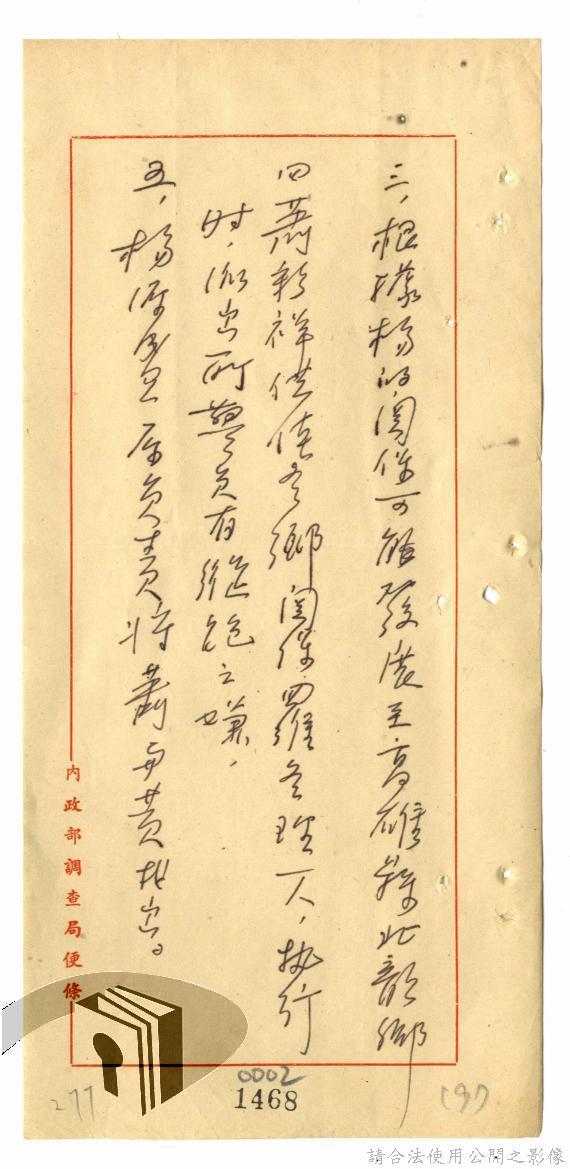 三，根據楊的關係可能發展至高雄縣北部鄉
四蕭新祥供出冬鄉關係羅冬理一人，執行
時，派出所警員有縱跑之嫌，
五，楊源 負責將蕭與黃找出。
內政部調查局便條
0002
1468
277
197
請合法使用公開之影像